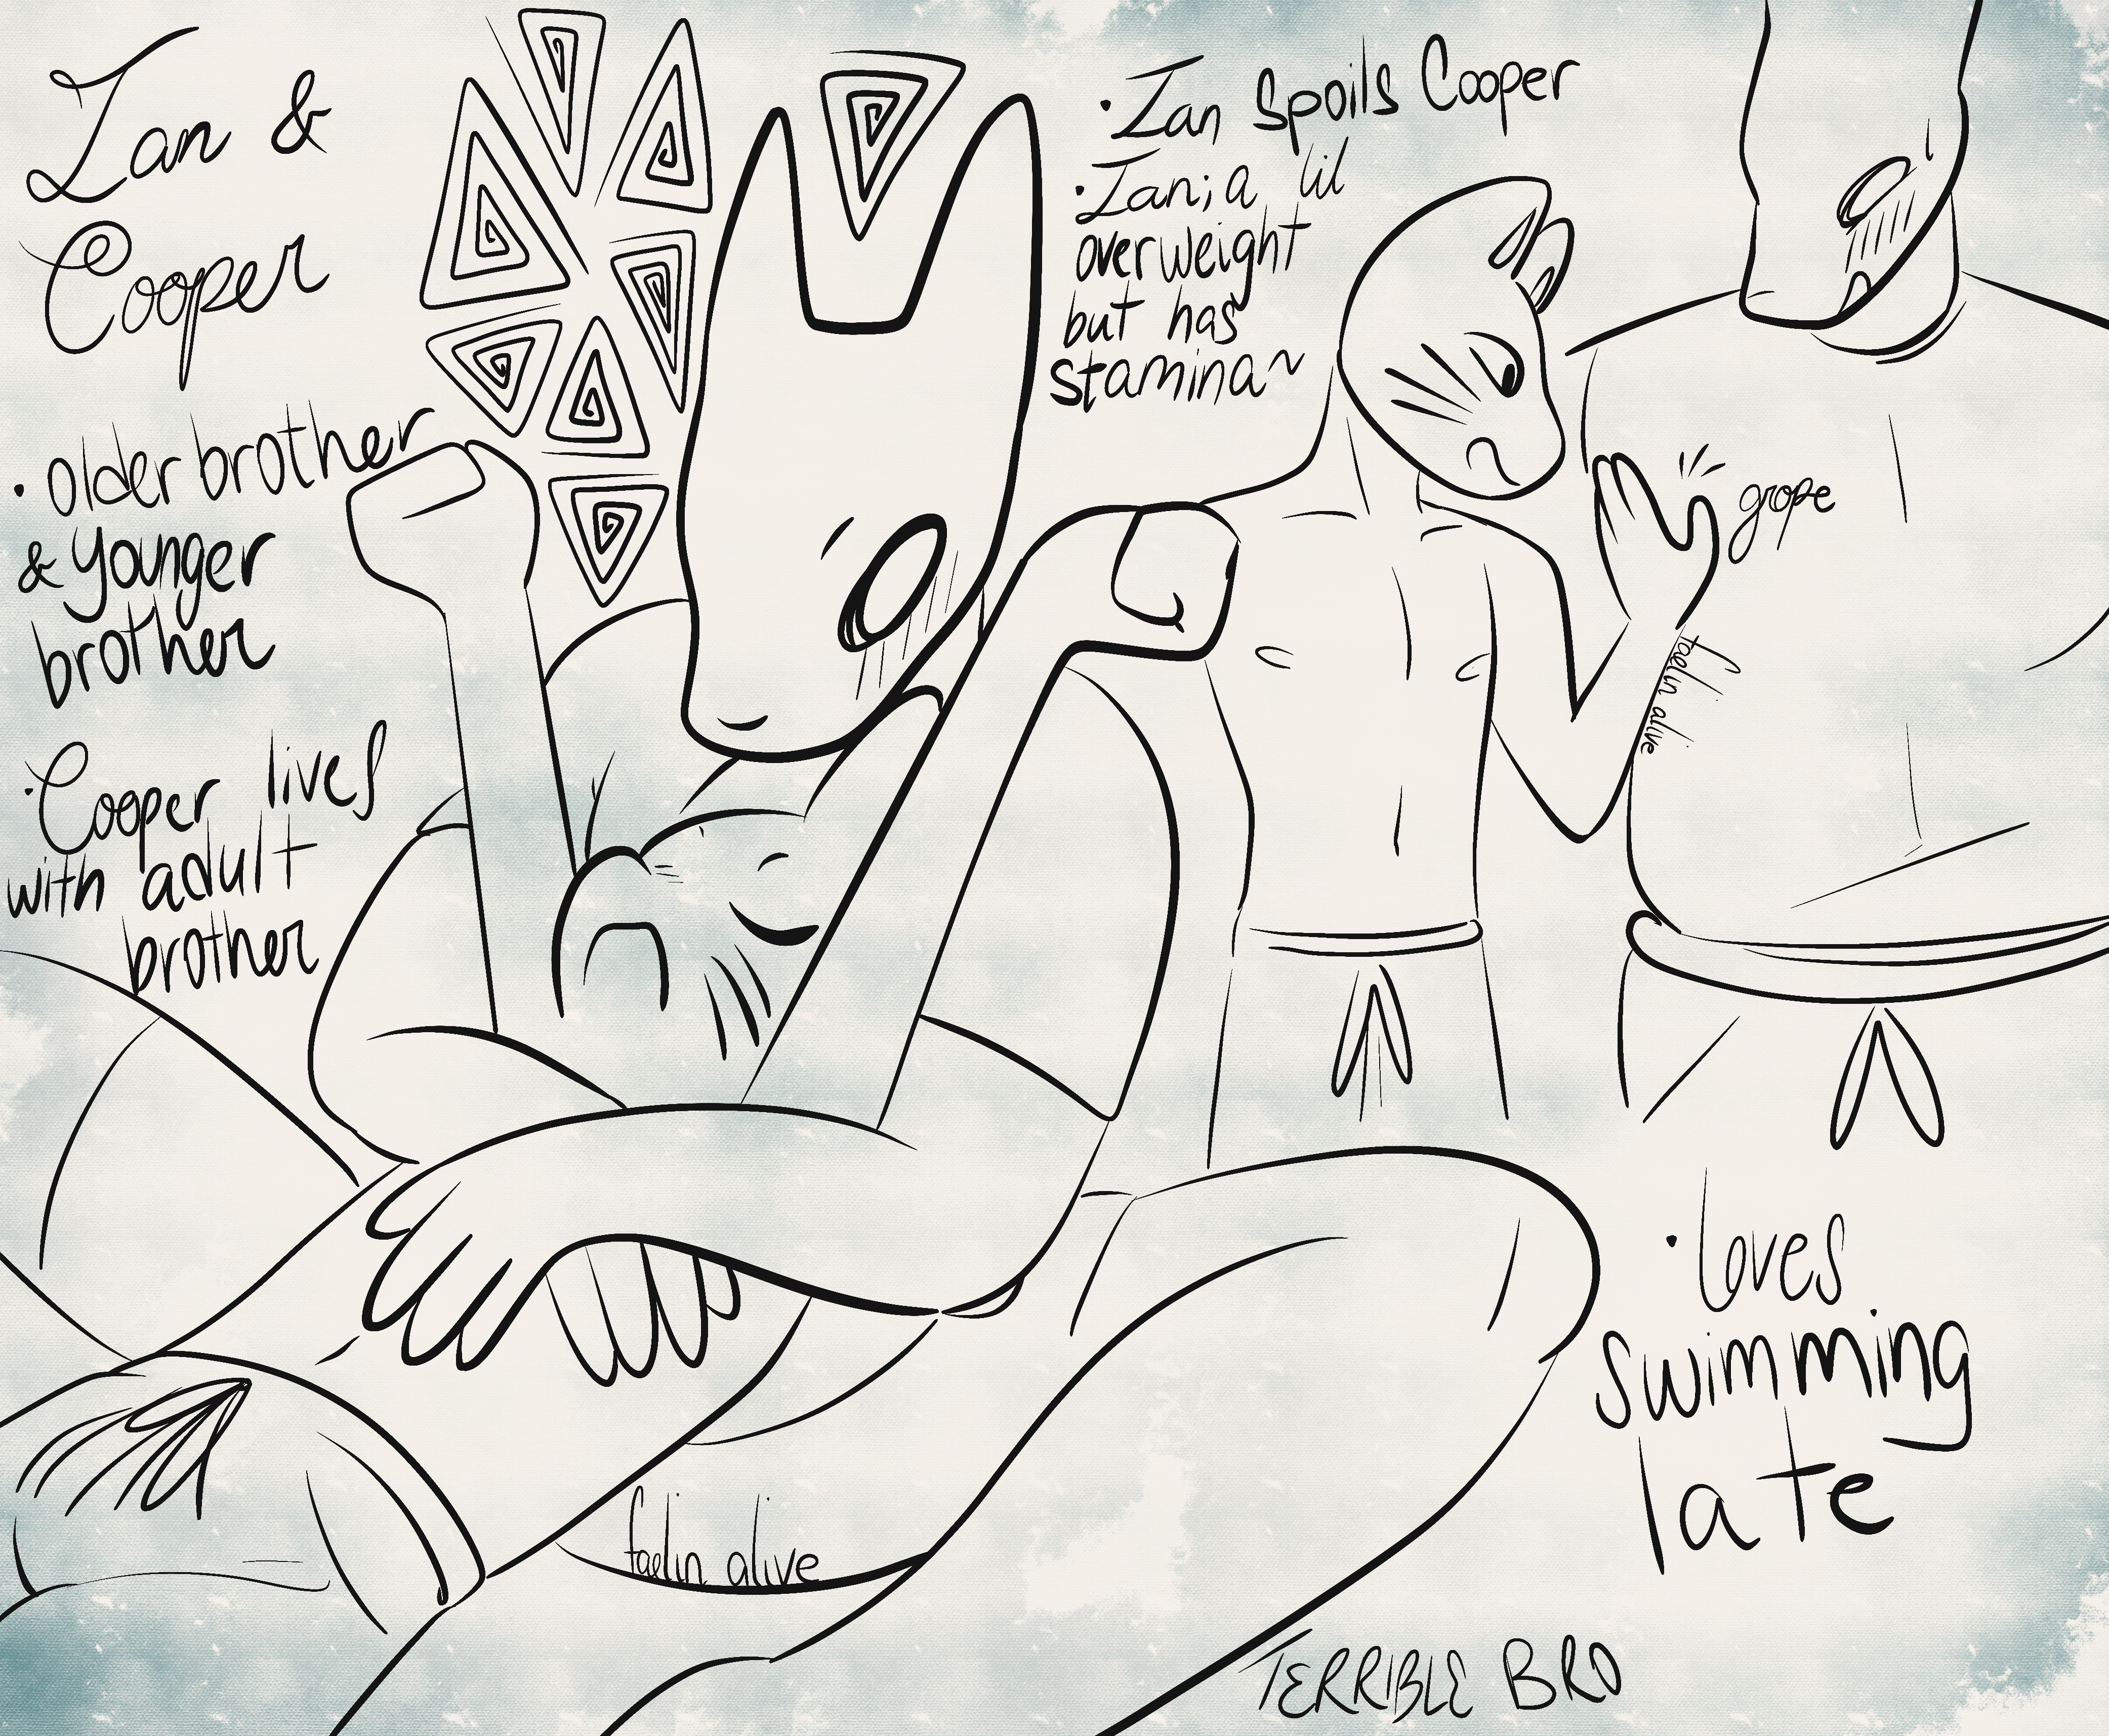 Ian &
Cooper
• older brother
& younger
brother
• Cooper lives
with adult
brother
• Ian Spoils Cooper
• Ian; a lil
overweight
but has
stamina~
grope
faelin alive
• loves
swimming
late
faelin alive
TERRIBLE BRO